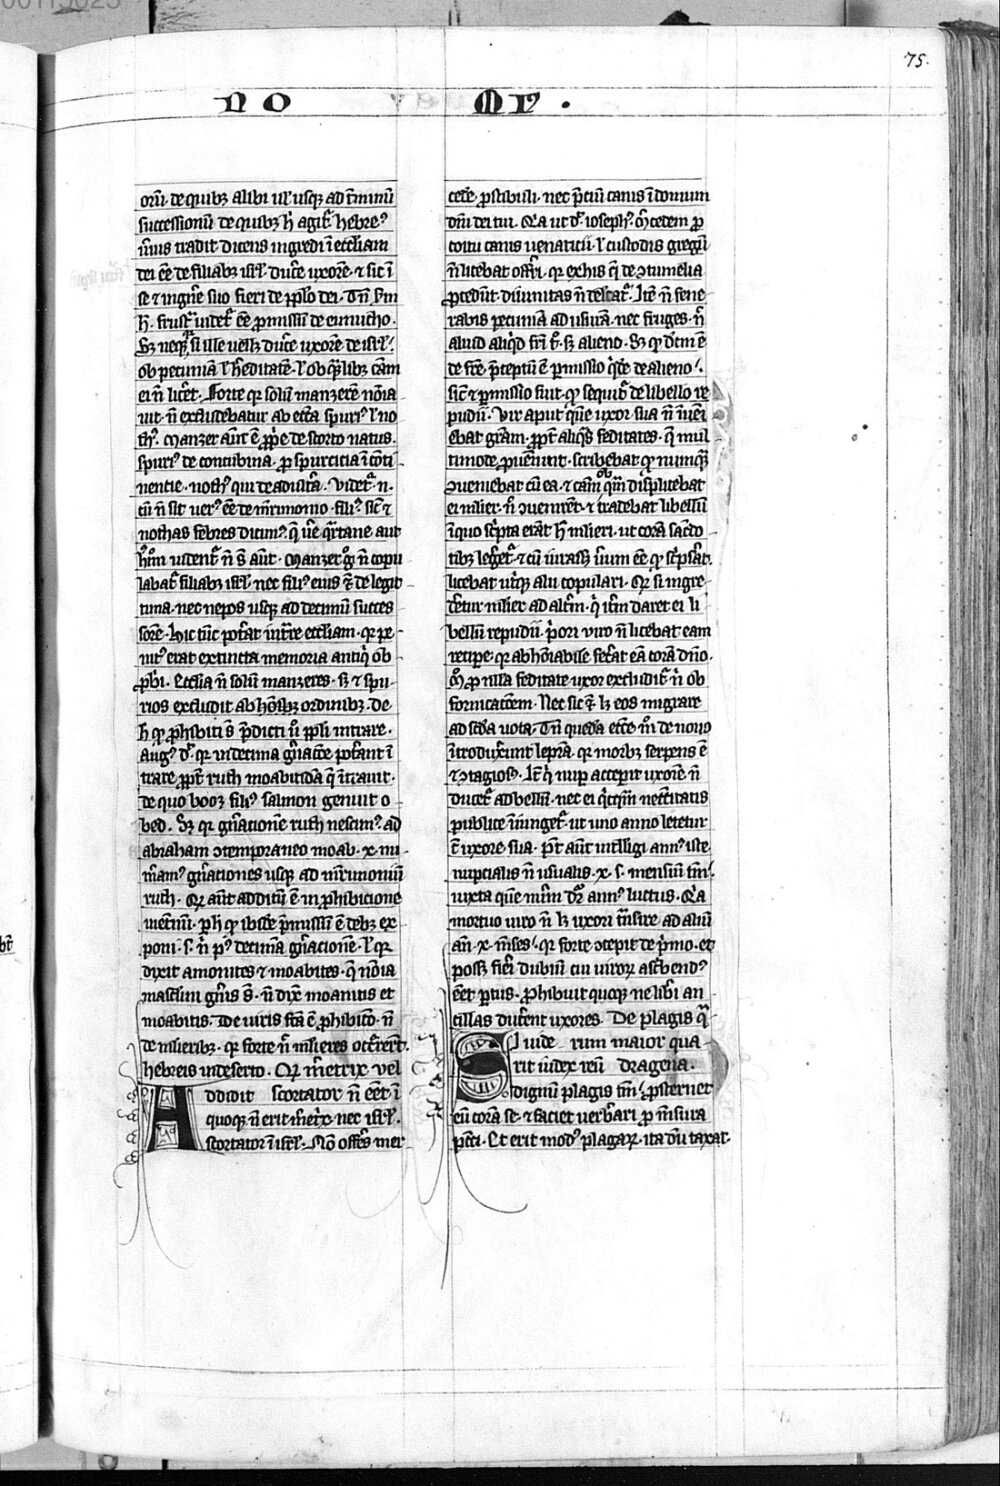 75.
NO MI .
oru. de quibȝ alibi ul' usqȝ ad t̄minū
successionū de quibȝ h̄ agit̄ hebreꝰ
dei eē de filiabȝ isrl' duc̄e uxorē. ⁊ sic ī
se ⁊ in gn̄e suo fieri de pp̄lo dei. Tn̄
h̄. frustᵃ videt̄ eē ꝓmissū de eunucho.
Sȝ neqȝ si ille vellȝ duc̄e uxorē de isrl'
ob pecuniā l' h̄editatē. l' ob q̄libȝ cām
ei n̄ licet̄. Forte qr solū manzerē noīa
uit. n̄ excludebatur ab ecc̄a spuriꝰ l' no
thꝰ. Manzer aūt ē ꝓp̄e de scorto natus.
spuriꝰ de concubina. ꝓ spurcicia īcōti
nencie. nothꝰ qui de adult̄a. Videt̄ᵃ n̄.
cū n̄ sit verꝰ eē de mr̄imonio. filiꝰ sic̄ ⁊
nothas febres dicimꝰ. q̄ ūe q̄rtane aut
hōm vident̄ n̄ s̄ aūt. Manzer gͦ n̄ copu
labat̄ filiabȝ isrl' nec filiꝰ eius ⁊ de legit
tima. nec nepos usqȝ ad decimū succes
sorē. Hic tūc pot̄at int̄re eccl'iam. qr pe
nitꝰ erat extincta memoria antiqͥ ob
ꝓbͥi. Eccl'ia n̄ solū manzeres. sȝ ⁊ spu
rios excludit ab hōibȝ ordinibȝ. De
h̄ qͦ ꝓhibiti s̄ p̄dicti ū pp̄li intrare.
Augꝰ dᵗ. qr in decima gn̄acōe pot̄ant ī
trare ꝓpt̄ ruth moabitidā q̄ ītrauit.
de quo booz filiꝰ salmon genuit o
bed. Sȝ qr gn̄acionē ruth nescimꝰ. ad
abraham ꝯtemporaneo moab. x. nu
m̄amꝰ gn̄aciones usqȝ ad mr̄imoniū
ruth. Qr aūt additū ē in ꝓhibicionē
inet̄nū. ꝑ h̄ qͦ ibidē p̄missū ē debȝ ex
poni. s. n̄ pꝰ decimā gn̄acionē. l' qr
dixit amonites ⁊ moabites. q̄ noīa
masculini gn̄is s̄. n̄ dix̄ moanitis et
moabitis. De viris fc̄a ē ꝓhibicō. n̄
de mulieribȝ. qr forte n̄ mulieres occ̄rerūt
hebreis in deserto. Qr m̄etrix vel
Addidit scortator n̄ eēt ī
quoqȝ n̄ erit m̄et̄x nec isrl'.
scortator ī isrl'. Nō offēs mer
cedē ꝓstibuli. nec p̄ciū canis ī domum
dn̄i dei tui. Qᵃ ut dᵗ ioseph. m̄cedem ꝓ
coitu canis venaticii l' custodis gregū
n̄ licebat offr̄i. qr ex his q̄ de ꝯtumelia
ꝓcedūt. diuinitas n̄ delc̄atᵃ. Itē n̄ fene
rabis pecuniā ad usurā. nec fruges. n̄
aliud aliqͥd fr̄i t̄. sȝ alieno. Sȝ qͦ dc̄m ē
de fr̄e. p̄ceptū ē ꝑmissio qͩ de alieno.
sic̄ ⁊ ꝑmissio fuit. qͦ sequit̄ de libello re
pudii. Vir aput quē uxor sua n̄ īueī
ebat grām. ꝓpt̄ aliqᵃs feditates. q̄ mul
timode ꝓueniūt. scribebat qͦ numqᵃ
ꝯueniebat cū ea. ⁊ cām ob quā displicebat
ei mulier. n̄ ꝯuenirēt. ⁊ tradebat libellū
ī quo sc̄pta erāt h̄ mulieri. ut corā sacͦdo
tibȝ leg̃etᵃ. ⁊ cū iurassȝ uirum eē qͦ sc̄psat̄.
licebat utͥqȝ alii copulari. Qr si ingre
det̄ur mulier ad alt̄m. qͥ it̄m daret ei li
bellū repudii. pͥori viro n̄ licebat eam
recipe. qr abhoīabile fec̄at eā corā dn̄o.
formicacōem. Nec sic ⁊ lȝ eos migrare
ad sc̄da uota. Tn̄ quedā ecc̄e m̄ de nouo
introdux̄unt leprā. qr morbȝ serpens ē
⁊ ꝯtagiosꝰ. Itē qͥ nup accepit uxorē n̄
ducet̄ ad bellū. nec ei qͥcqᵃm nec̄citatis
publice īiunget̄. ut uno anno letetur
c̄ uxore sua. pt̄ aūt intelligi annꝰ iste
nupcialis n̄ usualis. x. s. mensiū tm̄.
iuxta quē m̄m dr̄ annꝰ luctus. Qᵃ
mortuo viro n̄ lȝ uxori tn̄sire ad aliū
an̄. x. m̄ses. qr forte ꝯcepit de pͥmo. et
possȝ fieri dubiū cui virorȝ ascͥbendꝰ
eēt ꝑtus. Prohibuit quoqȝ ne libi an
cillas ducent uxores. De plagis qᵃ
SI uide rum maior qua
rit iudex reū dragena.
dignū plagis tm̄. ꝓsternet
eū corā se. ⁊ faciet verb̄ari ꝓ m̄sura
pc̄ti. Et erit modꝰ plagarȝ. ita dū taxat.